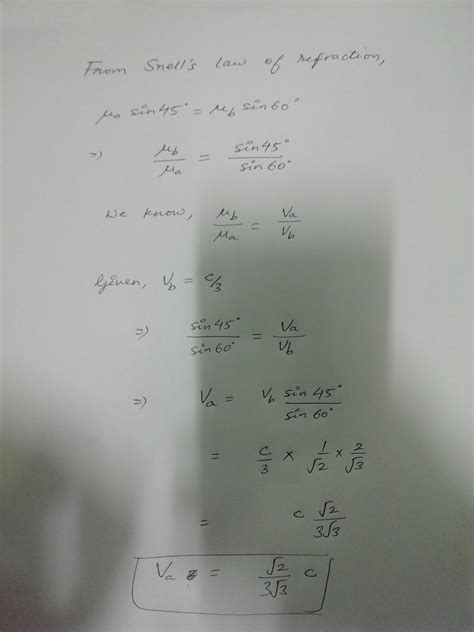 From Snell's law of refraction,
μa sin45° = μb sin60°
⇒) μb/μa = sin45°/sin60°
We know, μb/μa = Va/Vb
Given, Vb = c/3
⇒) sin45°/sin60° = Va/Vb
⇒) Va = Vb sin45°/sin60°
= c/3 × 1/√2 × 2/√3
= c √2/3√3
Va = √2/3√3 c